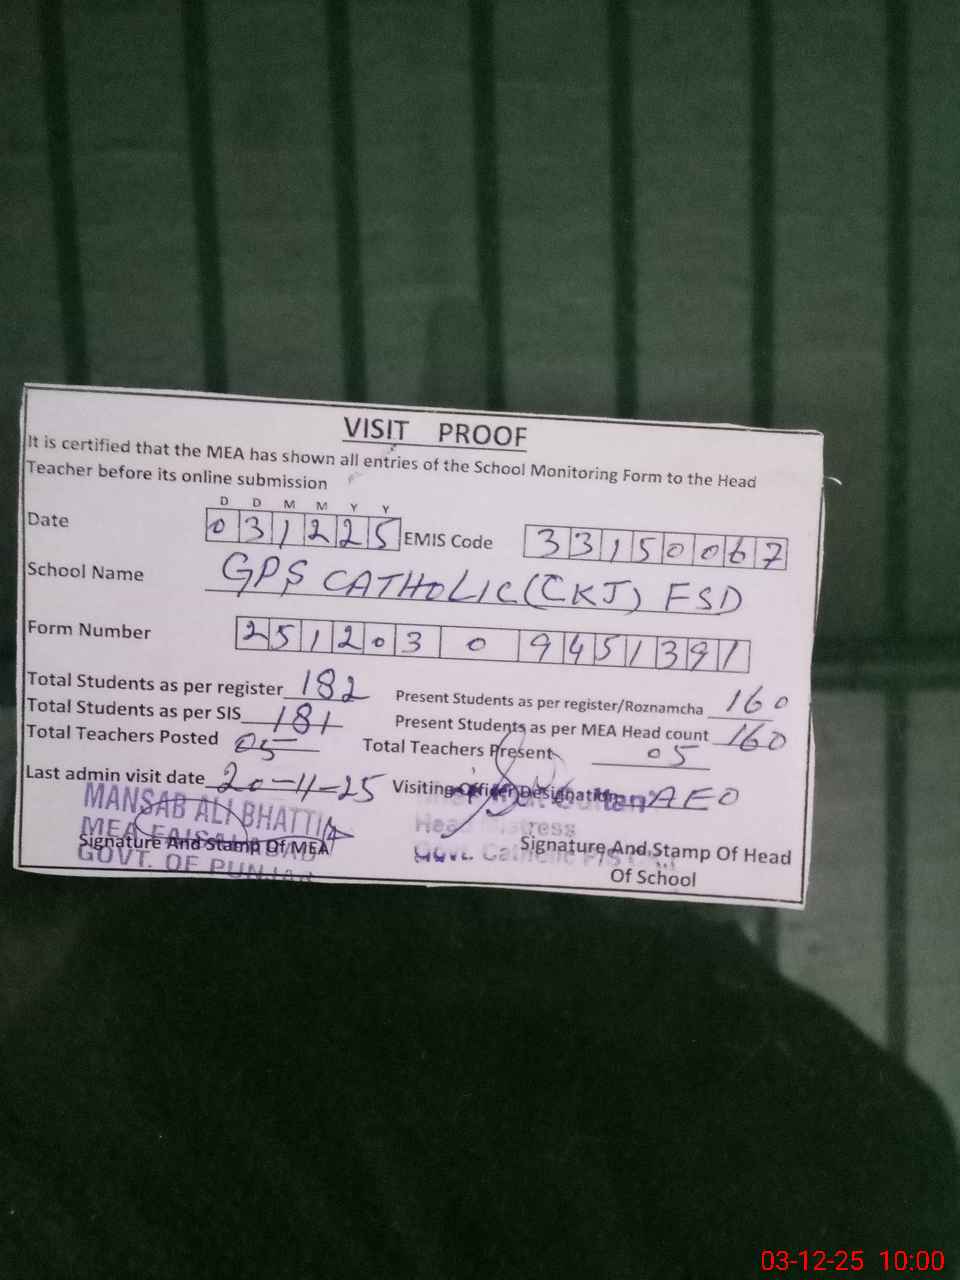 VISIT PROOF
It is certified that the MEA has shown all entries of the School Monitoring Form to the Head
Teacher before its online submission
D D M M Y Y
Date 031225 EMIS Code 33150067
School Name GPS CATHOLIC (CKJ) FSD
Form Number 251203 0 9451391
Total Students as per register 182 Present Students as per register/Roznamcha 160
Total Students as per SIS 181 Present Students as per MEA Head count 160
Total Teachers Posted 05 Total Teachers Present 05
Last admin visit date 20-11-25 Visiting Officer Designation AEO
MANSAB ALI BHATTI
MEA FAISALABAD
GOVT. OF PUNJAB
Signature And Stamp Of MEA
Head Mistress
Govt. Catholic
Signature And Stamp Of Head
Of School
03-12-25 10:00